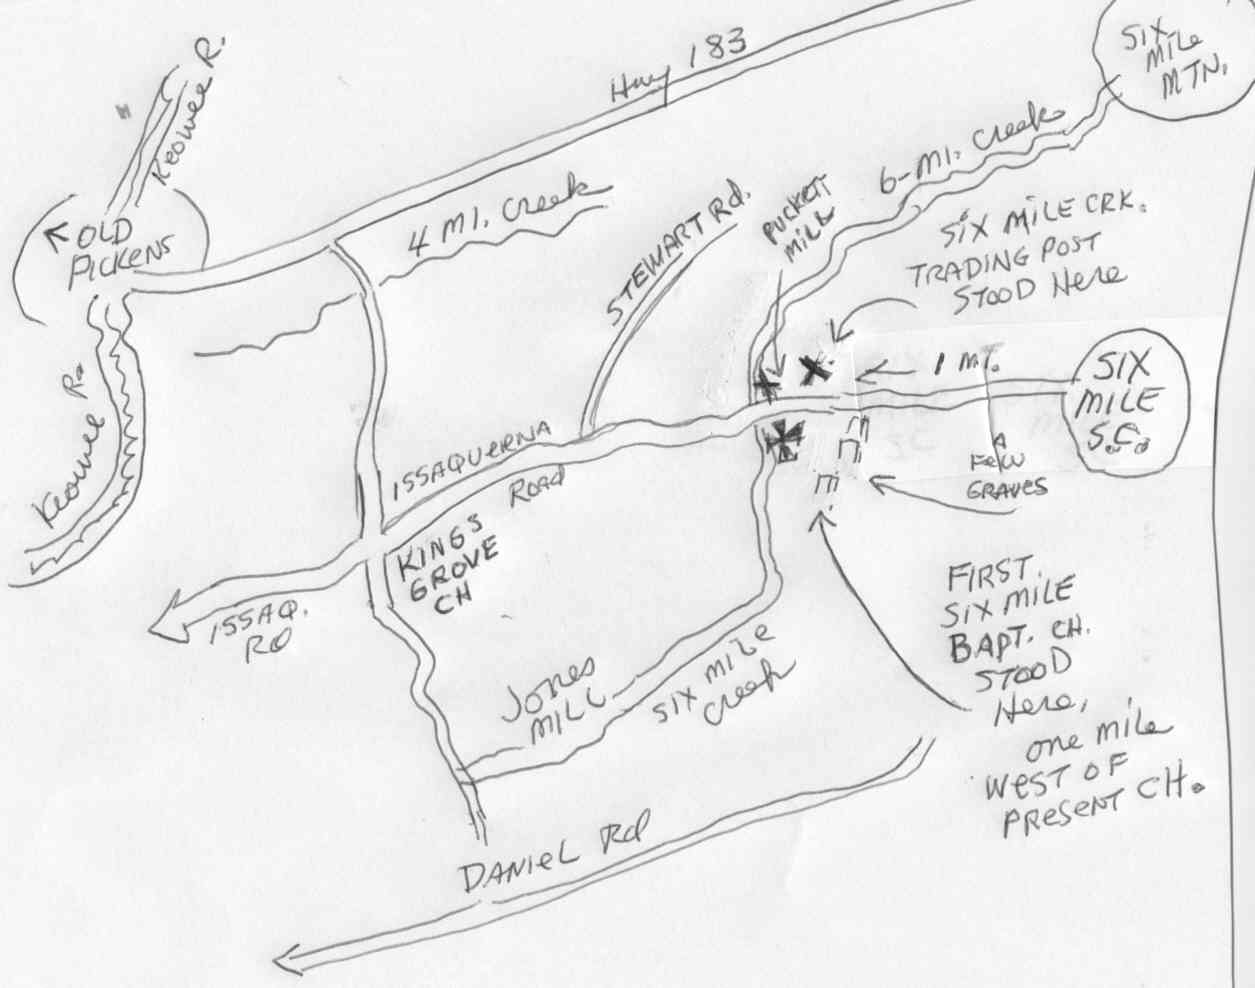 Hwy 183
SIX
MILE
MTN.
Keowee R.
OLD
PICKENS
4 MI. Creek
STEWART Rd.
PUCKETT
MILL
6-MI. Creek
SIX MILE CRK.
TRADING POST
STOOD Here
1 MI.
SIX
MILE
S.C.
Keowee R.
ISSAQUEENA
Road
Few
GRAVES
KINGS
GROVE
CH
ISSAQ.
RD
FIRST
SIX MILE
BAPT. CH.
STOOD
Here,
one mile
WEST OF
PRESENT CH.
Jones
MILL
SIX MILE
Creek
DANIEL Rd